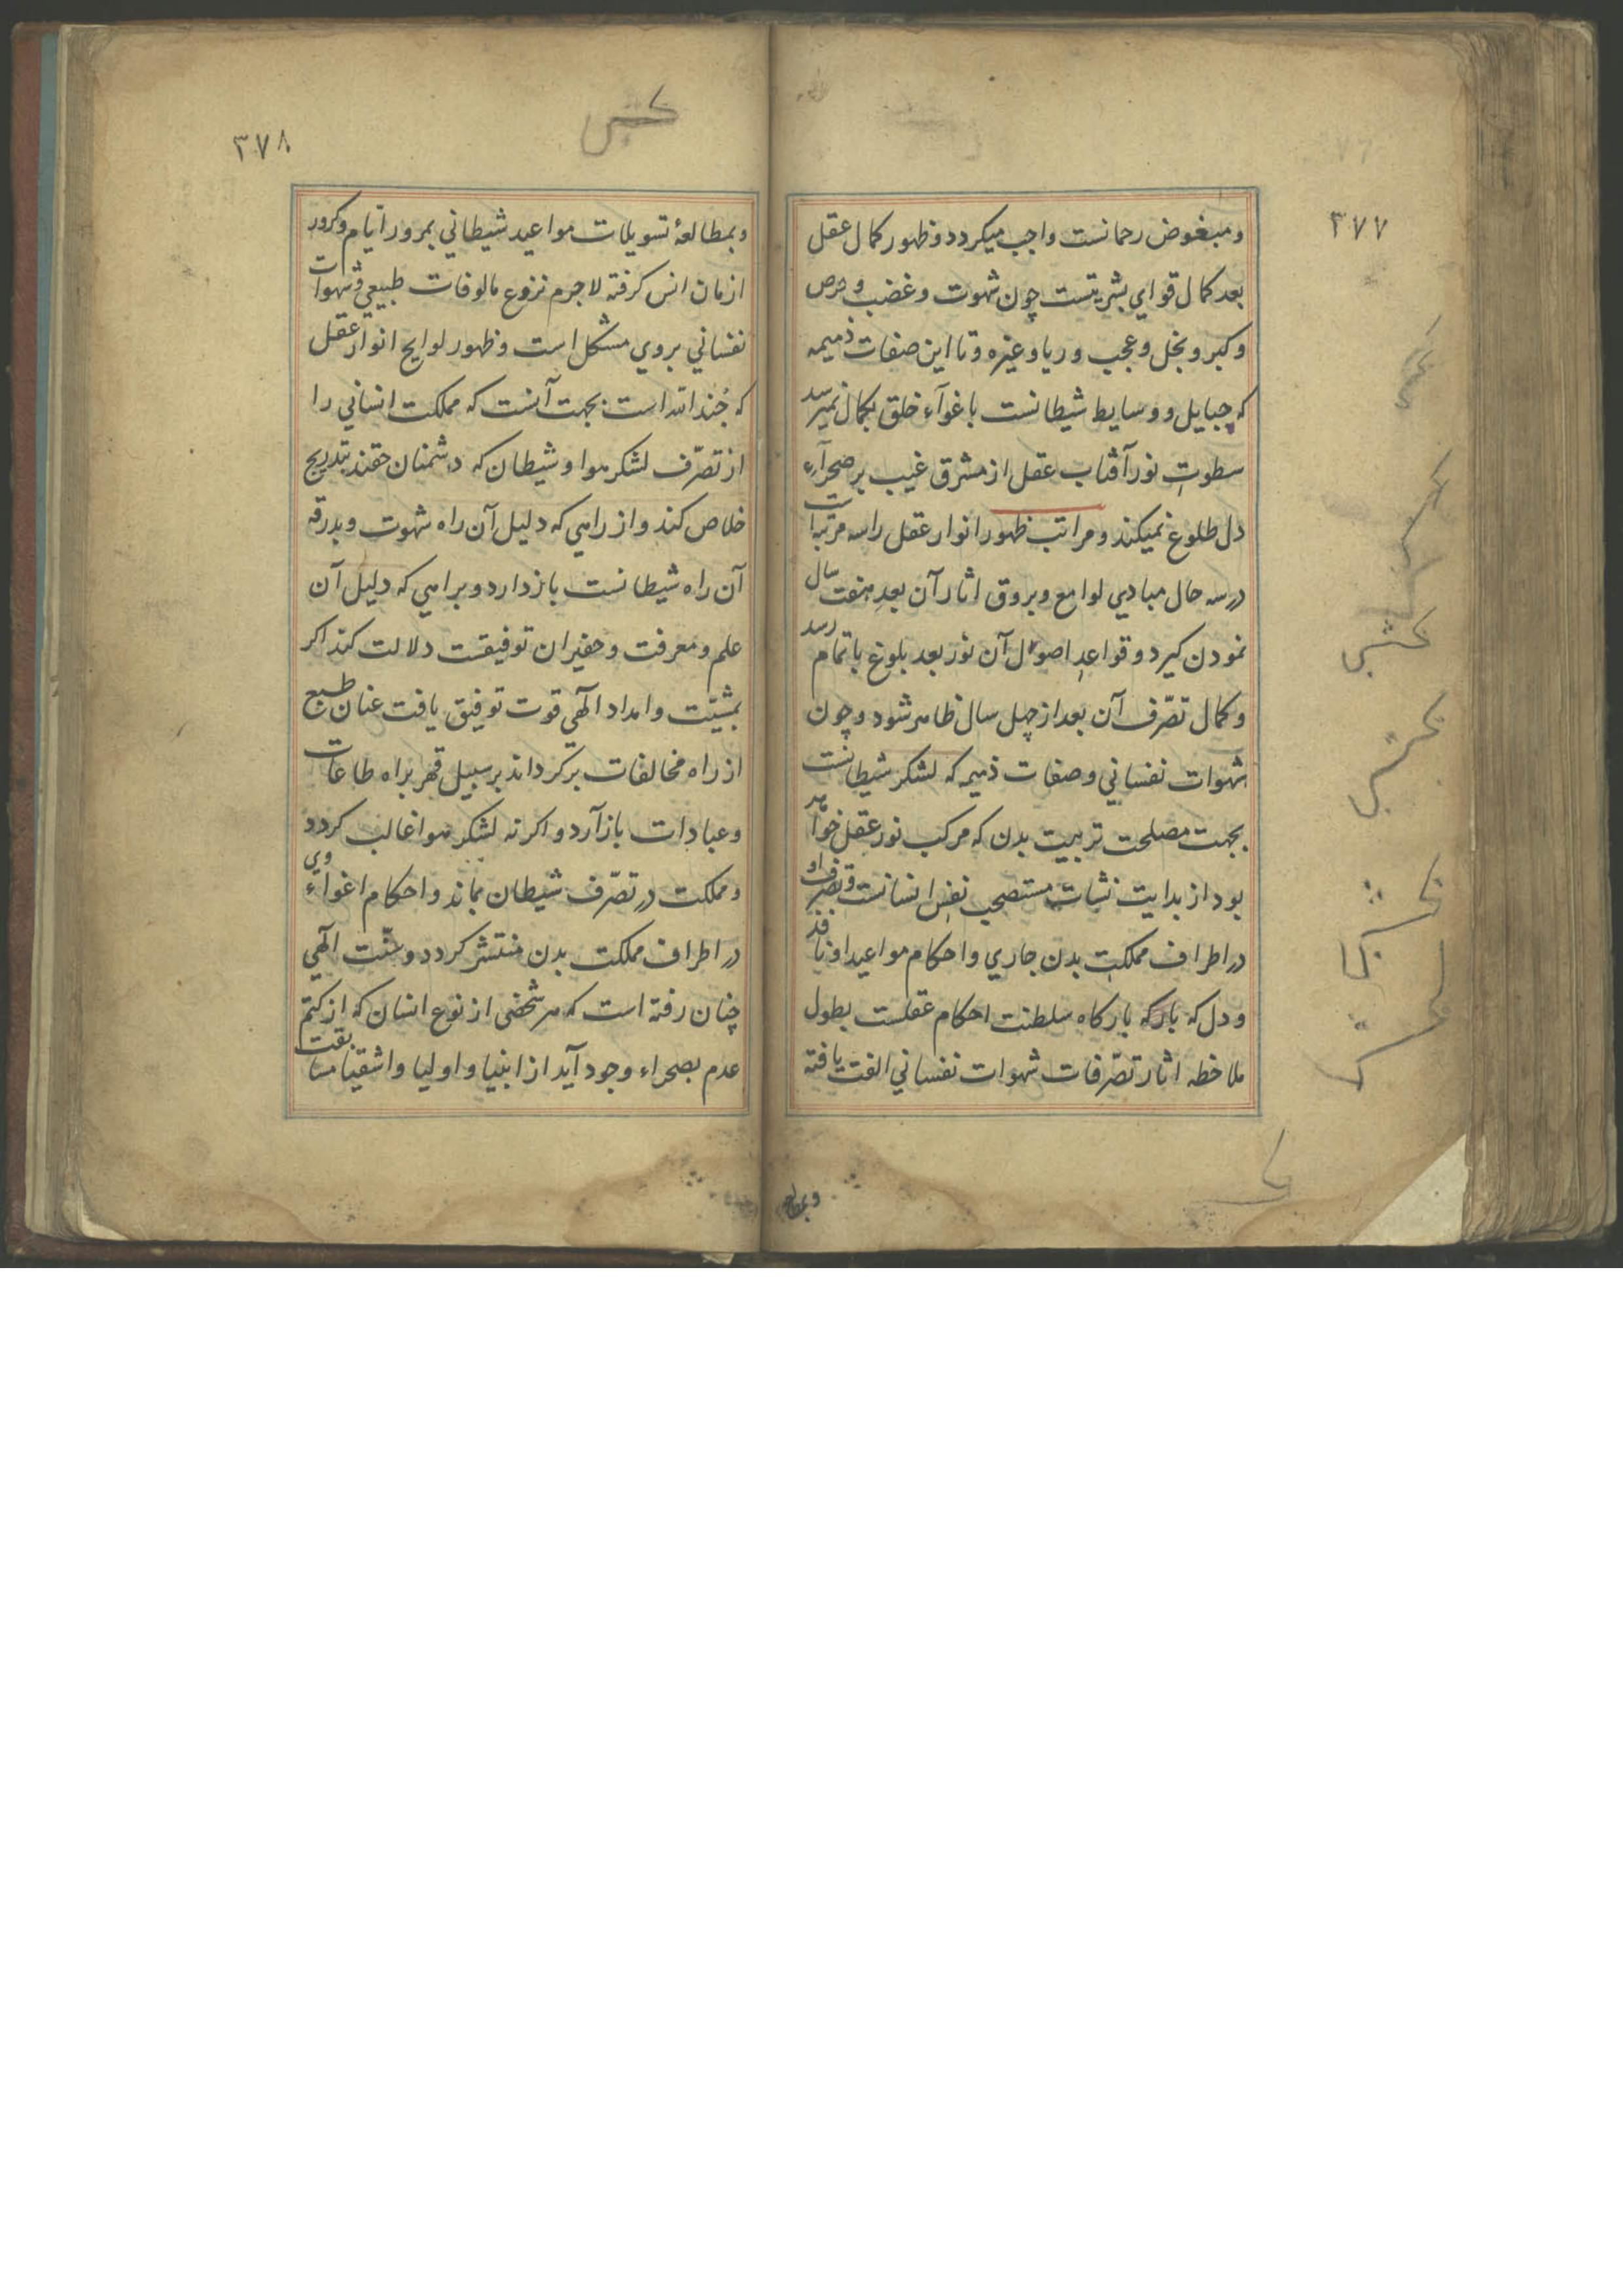 ۳۷۷
ومبغوض رحمانست واجب میکردد وظهور کمال عقل
بعد کمال قوای بشریتست چون شهوت وغضب وحرص
وکبر وبخل وعجب وریا وغیره وتا این صفات ذمیمه
که حبایل ووسایط شیطانست باغوآء خلق بکمال نمیرسد
سطوت نور آفتاب عقل از مشرق غیب بر صحرآء
دل طلوع نمیکند ومراتب ظهور انوار عقل را سه مرتبه است
در سه حال مبادی لوامع وبروق اثار آن بعد هفت سال
نمودن کیرد وقواعد اصول آن نور بعد بلوغ باتمام رسد
وکمال تصرّف آن بعد از چهل سال ظاهر شود وچون
شهوات نفسانی وصفات ذمیمه که لشکر شیطانست
بجهت مصلحت تربیت بدن که مرکب نور عقل خواهد
بود از بدایت نشات مستصحب نفس انسانست وتصرف او
در اطراف مملکت بدن جاری واحکام مواعید او نافذ
ودل که بارکه بارکاه سلطنت احکام عقلست بطول
ملاحظه اثار تصّرفات شهوات نفسانی الفت یافته
۳۷۸
وبمطالعهٔ تسویلات مواعید شیطانی بمرور ایّام وکرور
ازمان انس کرفته لاجرم نزوع مالوفات طبیعی وشهوات
نفسانی بروی مشکل است وظهور لوایح انوار عقل
که جُند الله است بجهت آنست که مملکت انسانی را
از تصرّف لشکر هوا وشیطان که دشمنان حقند بتدریج
خلاص کند واز راهی که دلیل آن راه شهوت وبدرقه
آن راه شیطانست بازدارد وبراهی که دلیل آن
علم ومعرفت وخفیر آن توفیقست دلالت کند اکر
بمشیّت وامداد الهی قوت توفیق یافت عنان طبع
از راه مخالفات برکرداند برسبیل قهر براه طاعات
وعبادات باز آرد واکر نه لشکر هوا غالب کردد
ومملکت در تصرّف شیطان بماند واحکام اغواء وی
در اطراف مملکت بدن منتشر کردد وسنّت الهی
چنان رفته است که هر شخصی از نوع انسان که از کتم
عدم بصحراء وجود آید از انبیا واولیا واشقیا مسابقت